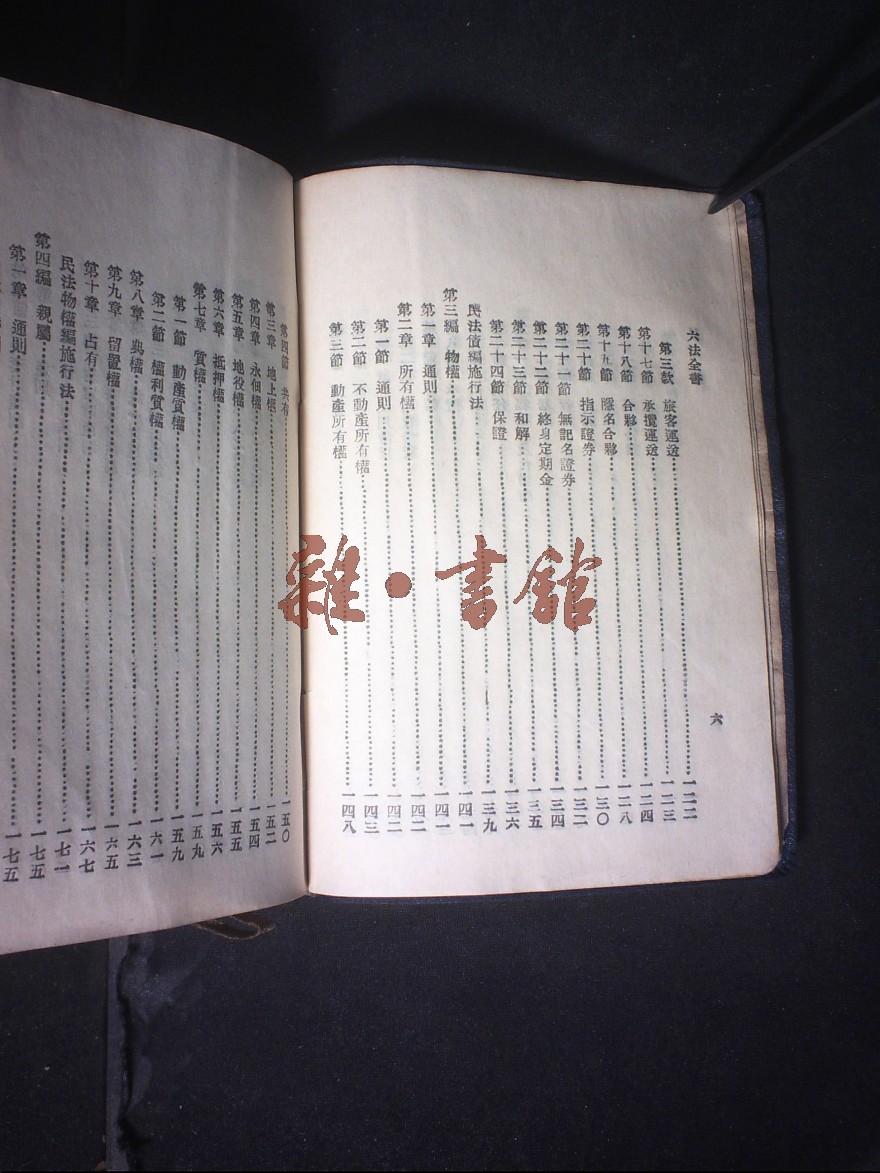 六法全書
第三款 旅客運送……一二二
第十七節 承攬運送……一二三
第十八節 合夥……一二四
第十九節 隱名合夥……一二八
第二十節 指示證券……一三〇
第二十一節 無記名證券……一三二
第二十二節 終身定期金……一三四
第二十三節 和解……一三五
第二十四節 保證……一三六
民法債編施行法……一三九
第三編 物權……一四一
第一章 通則……一四一
第二章 所有權……一四二
第一節 通則……一四二
第二節 不動產所有權……一四三
第三節 動產所有權……一四八
六
第四節 共有……一五〇
第三章 地上權……一五二
第四章 永佃權……一五四
第五章 地役權……一五五
第六章 抵押權……一五六
第七章 質權……一五九
第一節 動產質權……一五九
第二節 權利質權……一六一
第八章 典權……一六三
第九章 留置權……一六五
第十章 占有……一六七
民法物權編施行法……一七一
第四編 親屬……一七五
第一章 通則……一七五
雜·書館